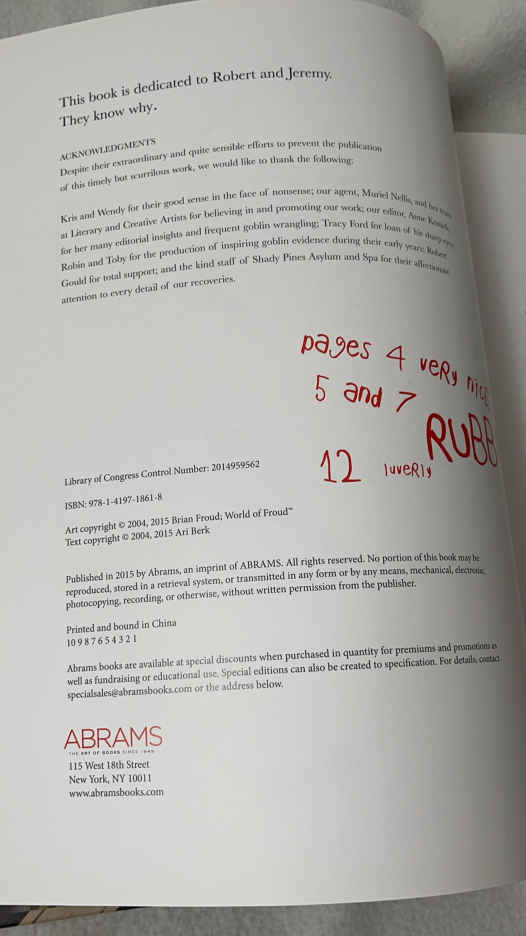 This book is dedicated to Robert and Jeremy.
They know why.
ACKNOWLEDGMENTS
Despite their extraordinary and quite sensible efforts to prevent the publication
of this timely but scurrilous work, we would like to thank the following:
Kris and Wendy for their good sense in the face of nonsense; our agent, Muriel Nellis, and her team
at Literary and Creative Artists for believing in and promoting our work; our editor, Anne Kostick,
for her many editorial insights and frequent goblin wrangling; Tracy Ford for loan of his sharp eyes;
Robin and Toby for the production of inspiring goblin evidence during their early years; Robert
Gould for total support; and the kind staff of Shady Pines Asylum and Spa for their affectionate
attention to every detail of our recoveries.
pages 4 very nice
5 and 7
RUBB
12 luverly
Library of Congress Control Number: 2014959562
ISBN: 978-1-4197-1861-8
Art copyright © 2004, 2015 Brian Froud; World of Froud™
Text copyright © 2004, 2015 Ari Berk
Published in 2015 by Abrams, an imprint of ABRAMS. All rights reserved. No portion of this book may be
reproduced, stored in a retrieval system, or transmitted in any form or by any means, mechanical, electronic,
photocopying, recording, or otherwise, without written permission from the publisher.
Printed and bound in China
10 9 8 7 6 5 4 3 2 1
Abrams books are available at special discounts when purchased in quantity for premiums and promotions as
well as fundraising or educational use. Special editions can also be created to specification. For details, contact
specialsales@abramsbooks.com or the address below.
ABRAMS
THE ART OF BOOKS SINCE 1949
115 West 18th Street
New York, NY 10011
www.abramsbooks.com